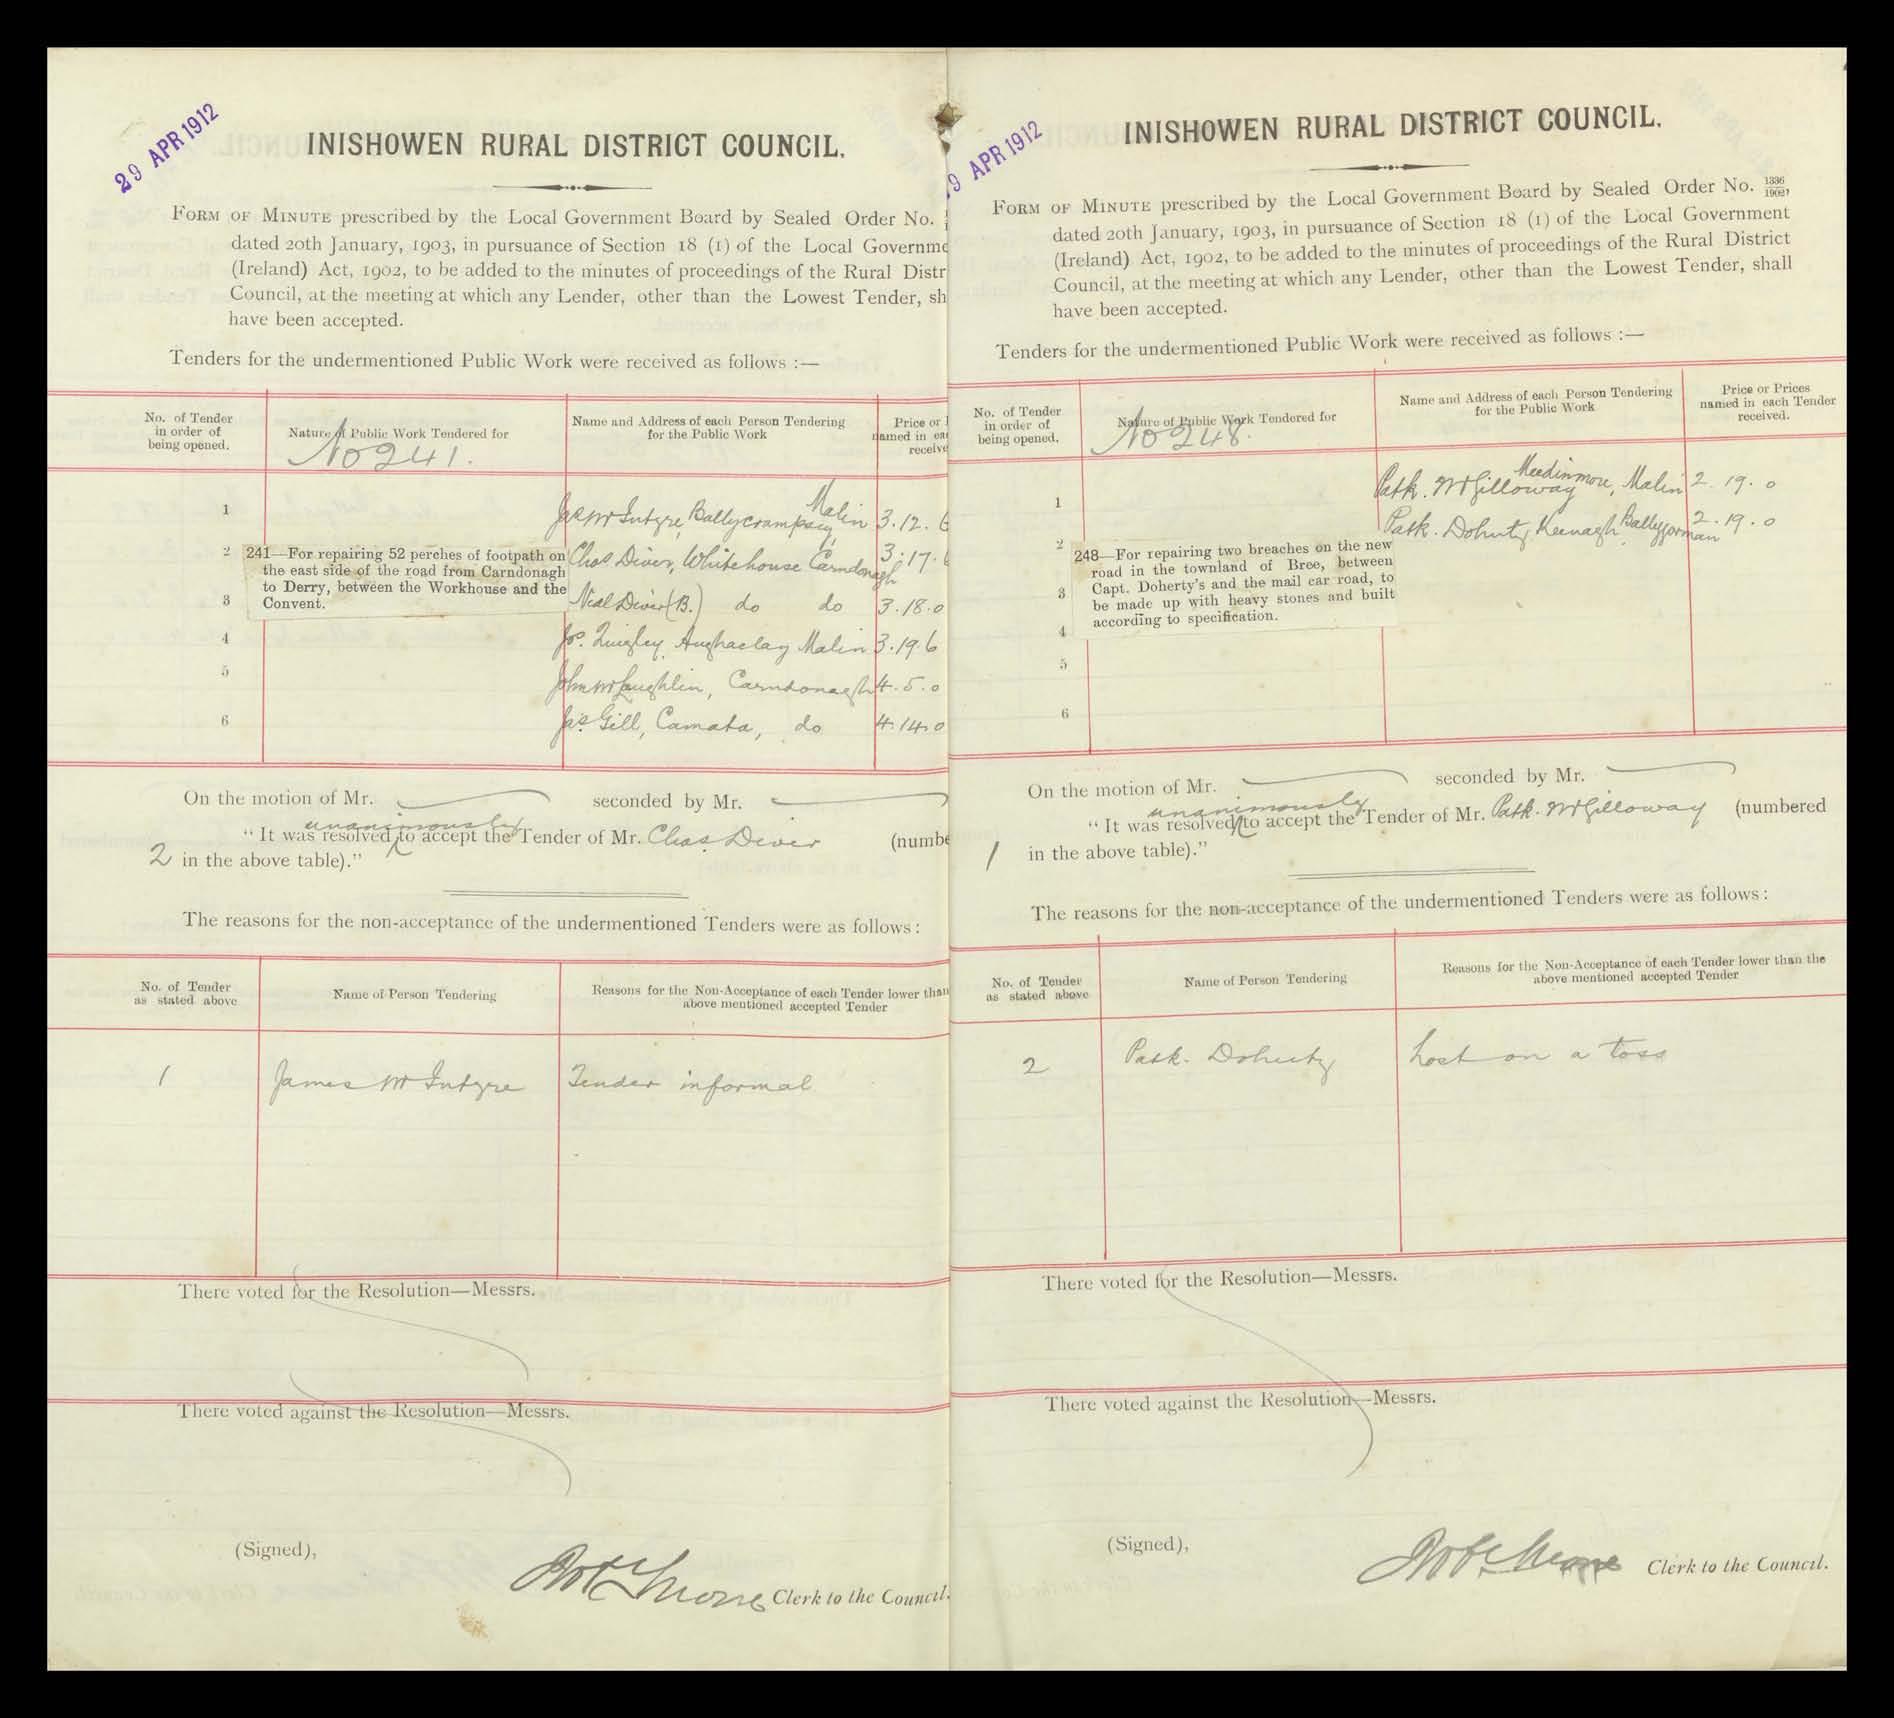 29 APR 1912
INISHOWEN RURAL DISTRICT COUNCIL.
FORM OF MINUTE prescribed by the Local Government Board by Sealed Order No.
dated 20th January, 1903, in pursuance of Section 18 (1) of the Local Governme
(Ireland) Act, 1902, to be added to the minutes of proceedings of the Rural Distr
Council, at the meeting at which any Lender, other than the Lowest Tender, sh
have been accepted.
Tenders for the undermentioned Public Work were received as follows :—
No. of Tender
in order of
being opened.
Nature of Public Work Tendered for
No 241.
Name and Address of each Person Tendering
for the Public Work
Price or
named in ea
receive
1 Jas McIntyre, Ballycrampsey, Malin 3.12.6
2 Chas Diver, Whitehouse Carndonagh 3.17.6
241—For repairing 52 perches of footpath on
the east side of the road from Carndonagh
to Derry, between the Workhouse and the
Convent.
3 Neal Diver (B.) do do 3.18.0
4 Jos. Quigley Aughaclay Malin 3.19.6
5 John McLaughlin, Carndonagh 4.5.0
6 Jas. Gill, Camata, do 4.14.0
On the motion of Mr. seconded by Mr.
unanimously
“ It was resolved to accept the Tender of Mr. Chas. Diver (numbe
2 in the above table).”
The reasons for the non-acceptance of the undermentioned Tenders were as follows :
No. of Tender
as stated above
Name of Person Tendering
Reasons for the Non-Acceptance of each Tender lower than
above mentioned accepted Tender
1 James McIntyre Tender informal
There voted for the Resolution—Messrs.
There voted against the Resolution—Messrs.
(Signed),
Clerk to the Council.
9 APR 1912
INISHOWEN RURAL DISTRICT COUNCIL.
FORM OF MINUTE prescribed by the Local Government Board by Sealed Order No. 1336/1902,
dated 20th January, 1903, in pursuance of Section 18 (1) of the Local Government
(Ireland) Act, 1902, to be added to the minutes of proceedings of the Rural District
Council, at the meeting at which any Lender, other than the Lowest Tender, shall
have been accepted.
Tenders for the undermentioned Public Work were received as follows :—
No. of Tender
in order of
being opened.
Nature of Public Work Tendered for
No 248.
Name and Address of each Person Tendering
for the Public Work
Price or Prices
named in each Tender
received.
1 Patk. McGilloway Meedinmore, Malin 2.19.0
2 Patk. Doherty Keenagh Ballygorman 2.19.0
248—For repairing two breaches on the new
road in the townland of Bree, between
Capt. Doherty's and the mail car road, to
be made up with heavy stones and built
according to specification.
3
4
5
6
On the motion of Mr. seconded by Mr.
unanimously
“ It was resolved to accept the Tender of Mr. Patk. McGilloway (numbered
1 in the above table).”
The reasons for the non-acceptance of the undermentioned Tenders were as follows :
No. of Tender
as stated above
Name of Person Tendering
Reasons for the Non-Acceptance of each Tender lower than the
above mentioned accepted Tender
2 Patk. Doherty Lost on a toss
There voted for the Resolution—Messrs.
There voted against the Resolution—Messrs.
(Signed),
Clerk to the Council.